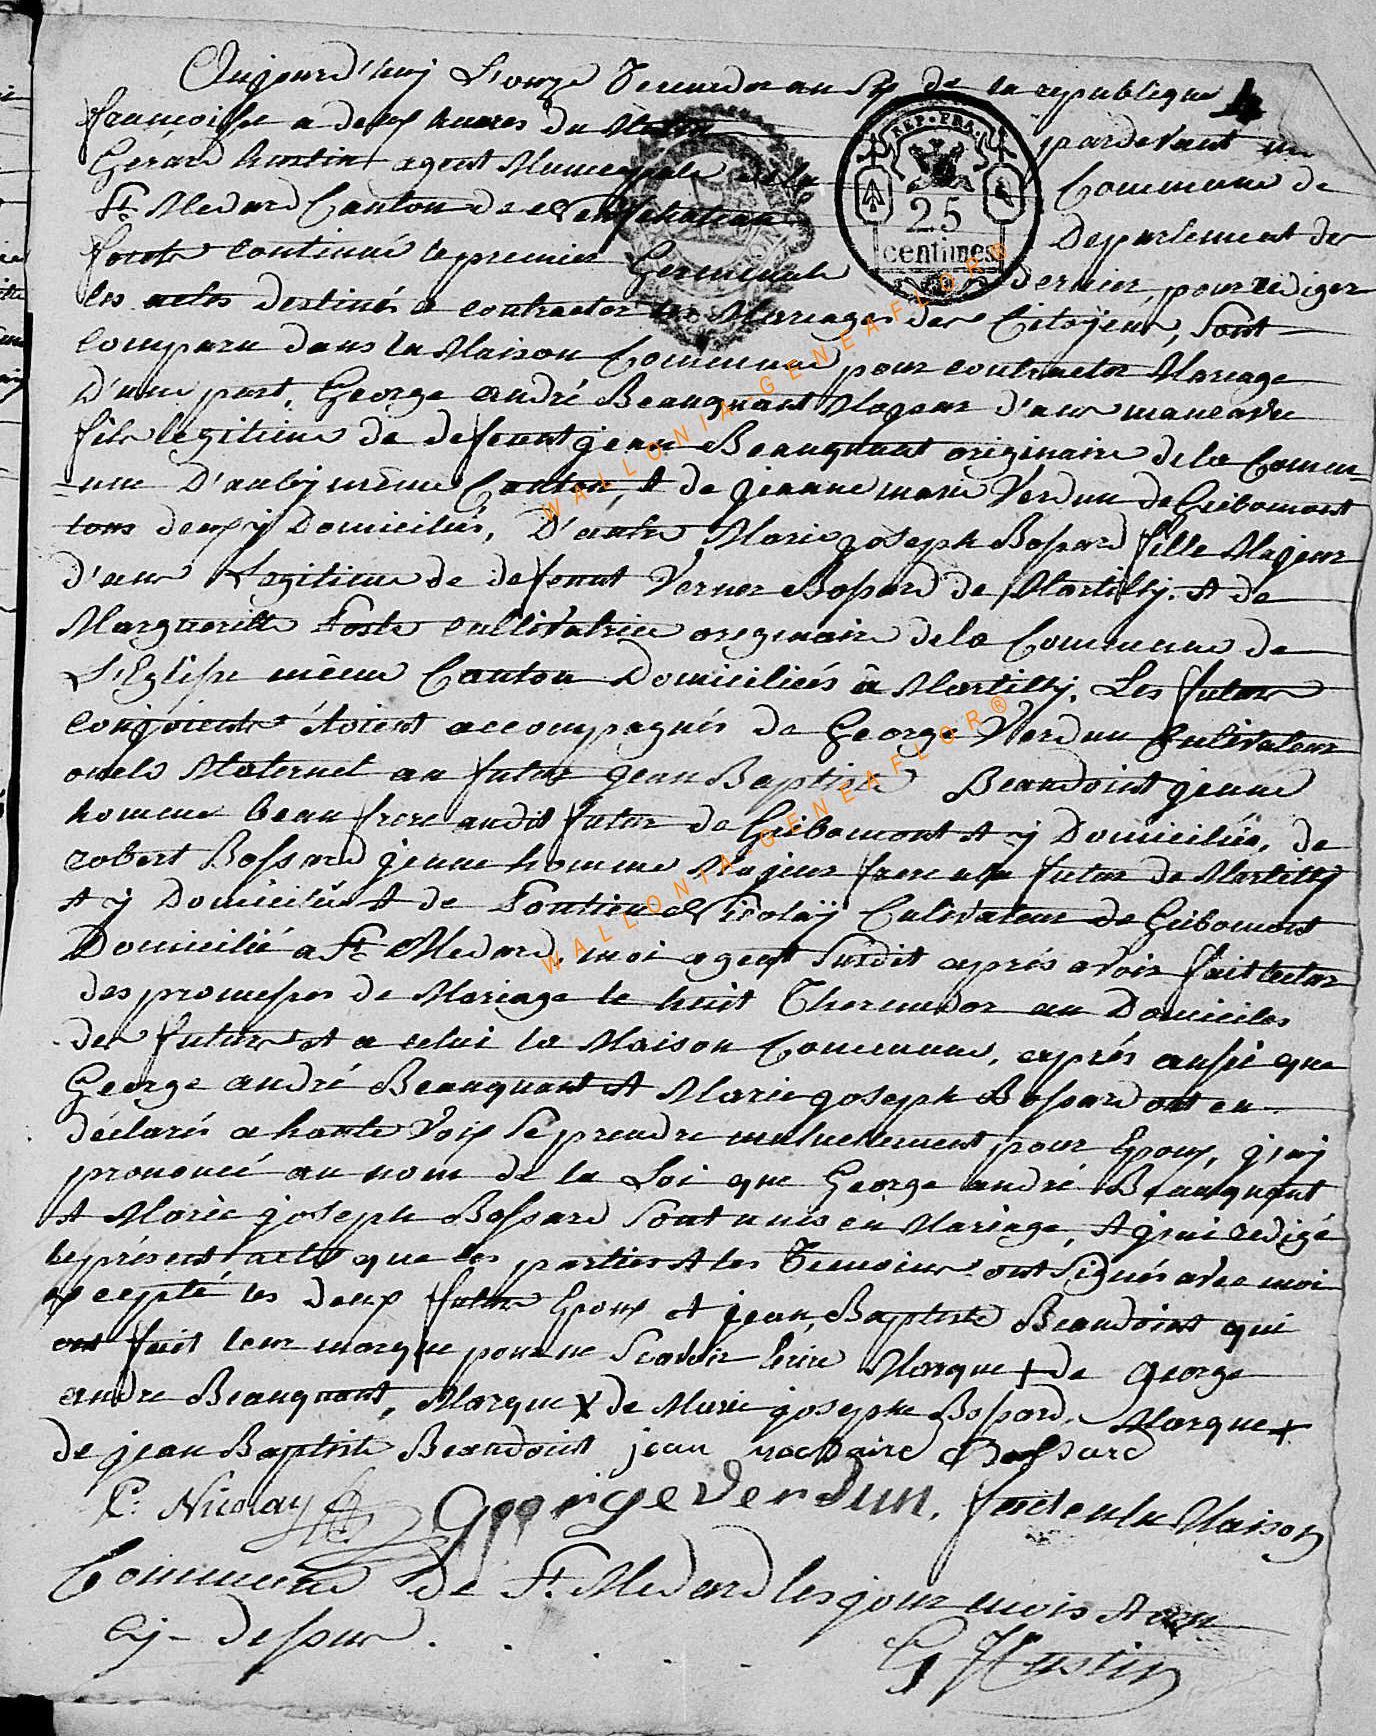 Aujourd'huy L'onze Termidor an Six de la republique 4
françoisse a deux heures du Matin pardevant
Gerard hustin agent Municipale de la Commune de
St. Medard Canton de Neufchateau Departement des
forets continué le premier Germinale dernier, pour rediger
les actes destinés a contracter les Mariages des Citoÿens, sont
comparu dans la Maison Commune pour contracter Mariage
D'une part, George andré Beauquant Majeur d'ans manœuvre
fils legitime de defeunt jean Beauquant originaire de la Commu-
-nne D'auby même Canton, et de jeanne marie Verdun de Gribomont
tous deux ÿ Domiciliés, D'autre Marie joseph Bossard fille Majeur
d'ans Legitime de defeunt Verner Bossard de Martilly. et de
Margueritte Foste cultivatrice originaire de la Commune de
L'Eglisse même Canton Domiciliés â Martilly. Les futurs
conjoients étoient accompagnés de George Verdun Cultivateur
oncle Maternel au futur jean Baptiste Beaudoint jeune
homme beau frere audit futur de Gribomont et ÿ Domiciliés, de
robert Bossard jeune homme Majeur frere a la futur de Martilly
et ÿ Domicilié et de Nicolaÿ Cultivateur de Gribomont
Domicilié a St. Medard, moi agent susdit aprés avoir fait lectur
des promesses de Mariage le huit Thermidor au Domiciles
des futurs et a celui la Maison Commune, aprés aussi que
George andré Beauquant et Marie joseph Bossard ont eu
déclarés a haute Voix se prendre mutuellement pour Epoux, j'ai
prononcé au nom de la Loi que George andré Beauquant
et Marie joseph Bossard sont unis en Mariage, et j'ai redigé
le présent acte que les parties et les Temoins ont signés avec moi
excepté les deux futur Epoux et jean Baptiste Beaudoint qui
ont fait leur marque pour ne scavoir Ecrire Marque + de George
andre Beauquant, Marque X de Marie josephe Bossard, Marque +
de jean Baptiste Beaudoint jean Bossard
C. Nicolay George verdun. fait en la Maison
Commune de St. Medard les jour mois et an
cÿ - dessus.
G Hustin
REP. FRA.
25
centimes
WALLONIA-GENEAFLOR®
WALLONIA-GENEAFLOR®